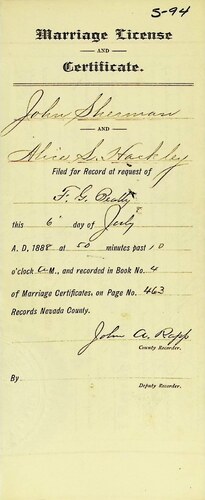 S-94
Marriage License
AND
Certificate.
John Sherman
AND
Alice S. Hackley
Filed for Record at request of
F. G. Beatty
this 6 day of July
A. D. 1888 at 50 minutes past 10
o'clock A M., and recorded in Book No. 4
of Marriage Certificates, on Page No. 463
Records Nevada County.
John A. Rapp
County Recorder.
By
Deputy Recorder.